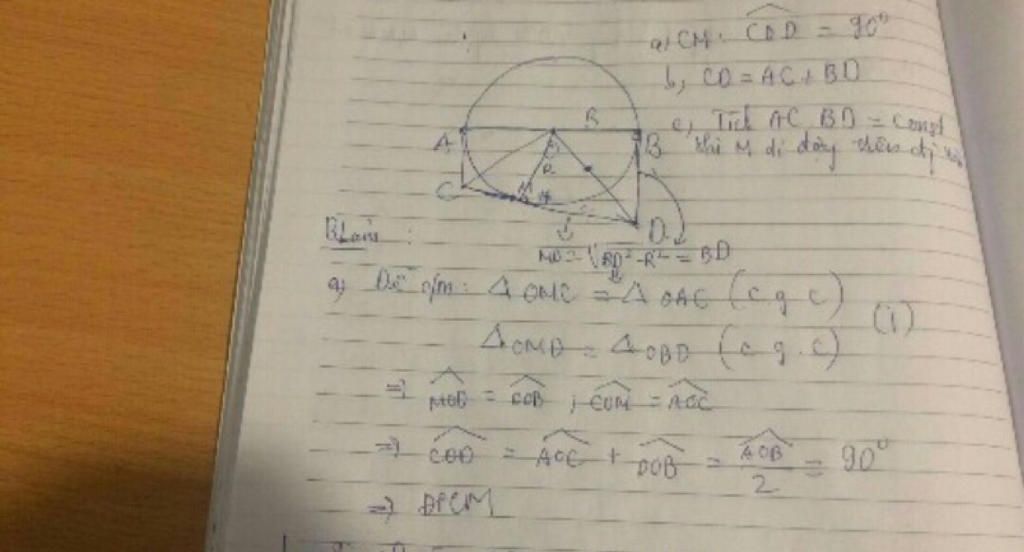 a) CM. COD = 90°
b, CD = AC + BD
c, Tích AC.BD = const
khi M di động trên
A
R
B
O
R
C
M
D
BLàm :
MD = √BD²-R² = BD
a) Dễ c/m: Δ OMC = Δ OAC (c g c)
(1)
Δ OMD = Δ OBD (c g . c)
⇒ MOD = DOB ; COM = AOC
⇒ COD = AOC + DOB = AOB/2 = 90°
⇒ ĐPCM